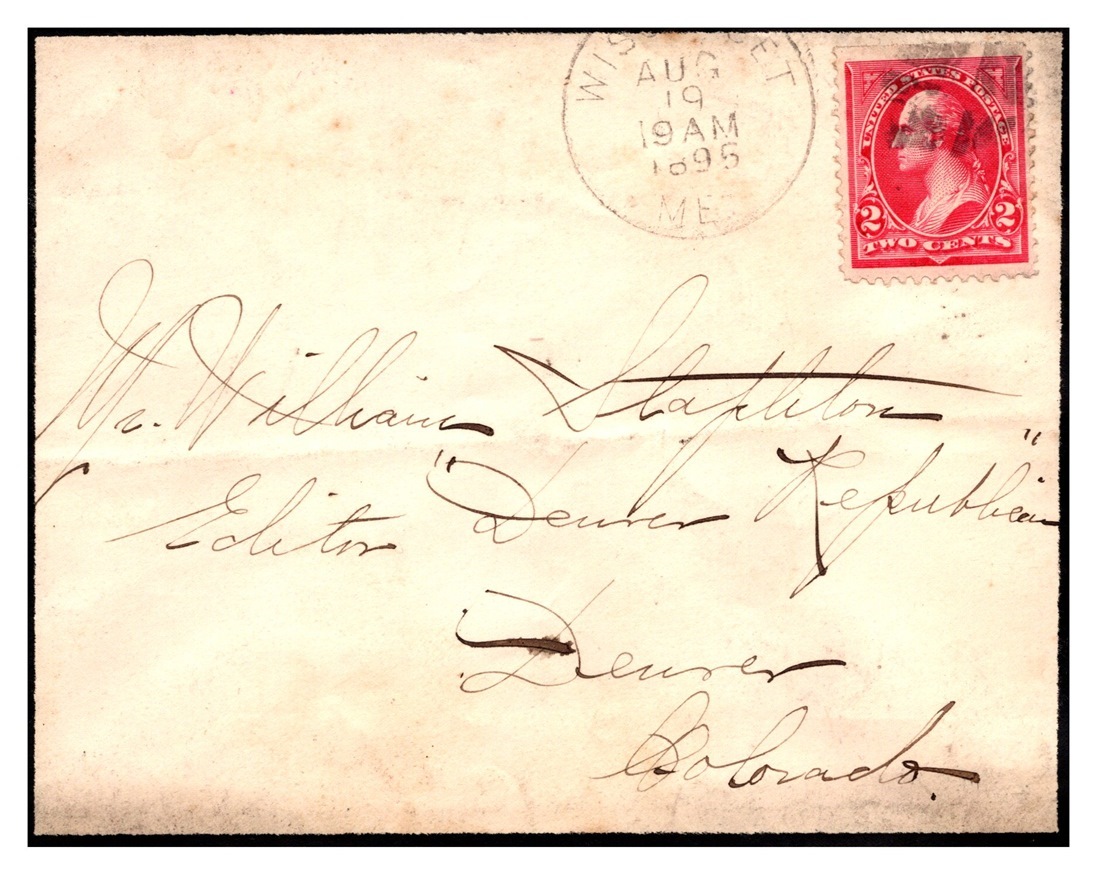 AUG
19
19AM
1895
ME
UNITED STATES POSTAGE
2 2
TWO CENTS
Mr. William Stapleton
Editor "Denver Republican"
Denver
Colorado.